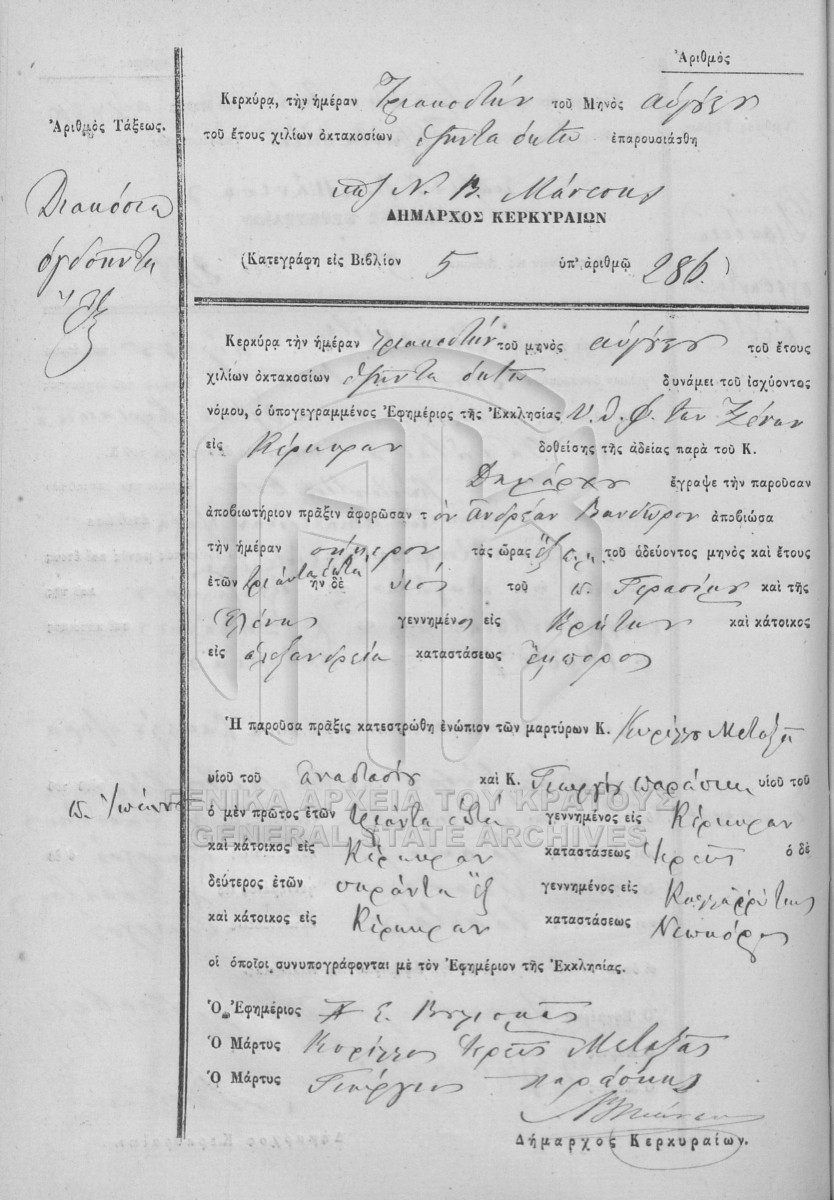 Ἀριθμὸς
Κερκύρα, τὴν ἡμέραν Τριακοστήν τοῦ Μηνὸς αὐγούστου
Ἀριθμὸς Τάξεως.
τοῦ ἔτους χιλίων ὀκτακοσίων ἑξήντα ὀκτώ ἐπαρουσιάσθη
Διακόσια
ὀγδοήντα
ἕξ
Ν. Β. Μάνεσης
ΔΗΜΑΡΧΟΣ ΚΕΡΚΥΡΑΙΩΝ
(Κατεγράφη εἰς Βιβλίον 5 ὑπ' ἀριθμῷ 286.)
Κερκύρα τὴν ἡμέραν τριακοστήν τοῦ μηνὸς αὐγούστου τοῦ ἔτους
χιλίων ὀκτακοσίων ἑξήντα ὀκτώ δυνάμει τοῦ ἰσχύοντος
νόμου, ὁ ὑπογεγραμμένος Ἐφημέριος τῆς Ἐκκλησίας Υ. Θ. Φ. των Ξένων
εἰς Κέρκυραν δοθείσης τῆς ἀδείας παρὰ τοῦ Κ.
Δημάρχου ἔγραψε τὴν παροῦσαν
ἀποβιωτήριον πρᾶξιν ἀφορῶσαν τον Ἀνδρέαν ἀποβιώσα
τὴν ἡμέραν σήμερον τὰς ὥρας ἕξ π.μ. τοῦ ὁδεύοντος μηνὸς καὶ ἔτους
ἐτῶν τριάντα ἑπτά ἦν δὲ υἱός τοῦ π. Γερασίμου καὶ τῆς
Ἑλένης γεννημένος εἰς Κρήτην καὶ κάτοικος
εἰς ἀλεξανδρεία καταστάσεως ἔμπορος
Ἡ παροῦσα πρᾶξις κατεστρώθη ἐνώπιον τῶν μαρτύρων Κ. Κυρίλλου Μεταξᾶ
υἱοῦ τοῦ Ἀναστασίου καὶ Κ. Γεωργίου Παράσκη υἱοῦ τοῦ
π. Ἰωάννου
ὁ μὲν πρῶτος ἐτῶν τριάντα ἑπτά γεννημένος εἰς Κέρκυραν
καὶ κάτοικος εἰς Κέρκυραν καταστάσεως Ἱερεύς ὁ δὲ
δεύτερος ἐτῶν σαράντα ἕξ γεννημένος εἰς Καλλαρρύτας
καὶ κάτοικος εἰς Κέρκυραν καταστάσεως Νεωκόρος
οἱ ὁποῖοι συνυπογράφονται μὲ τὸν Ἐφημέριον τῆς Ἐκκλησίας.
Ὁ Ἐφημέριος Σ.
Ὁ Μάρτυς Κυρίλλος Ἱερεύς Μεταξᾶς
Ὁ Μάρτυς Γεώργιος Παράσκης
Δήμαρχος Κερκυραίων.
ΓΕΝΙΚΑ ΑΡΧΕΙΑ ΤΟΥ ΚΡΑΤΟΥΣ
GENERAL STATE ARCHIVES